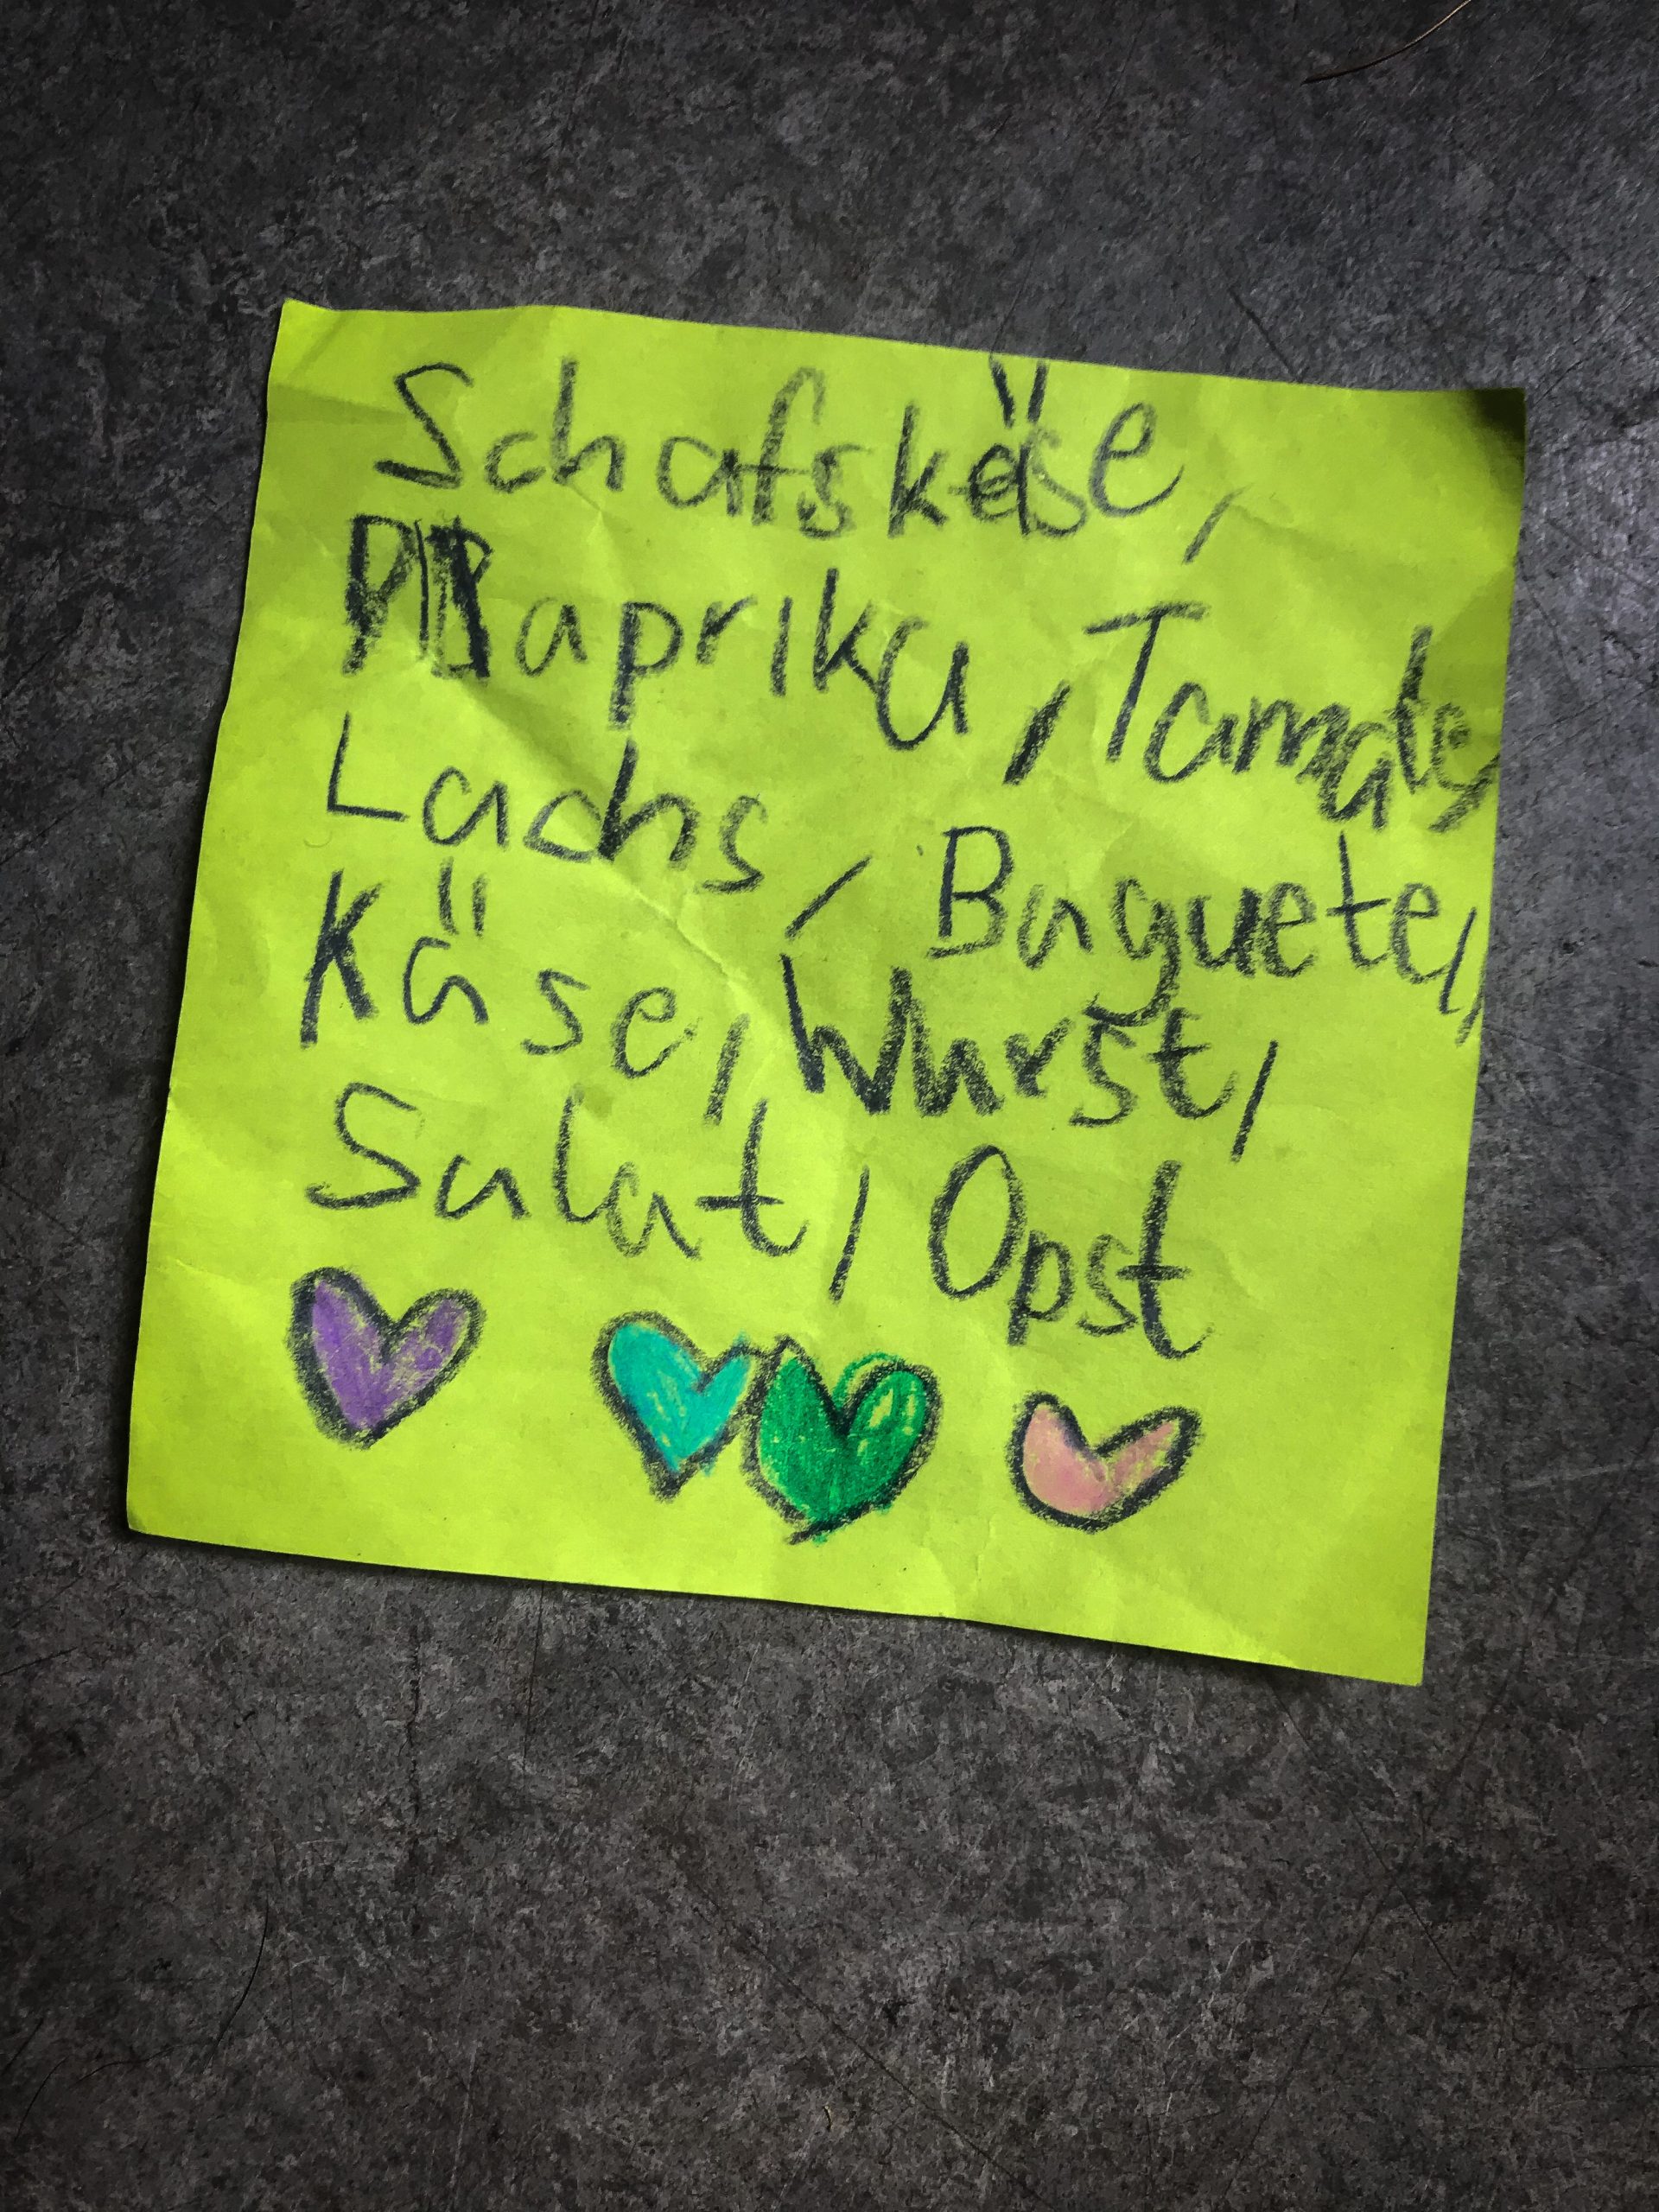 Schafskäse,
Paprika, Tamate,
Lachs, Baguete,
Käse, Wurst,
Salat, Opst